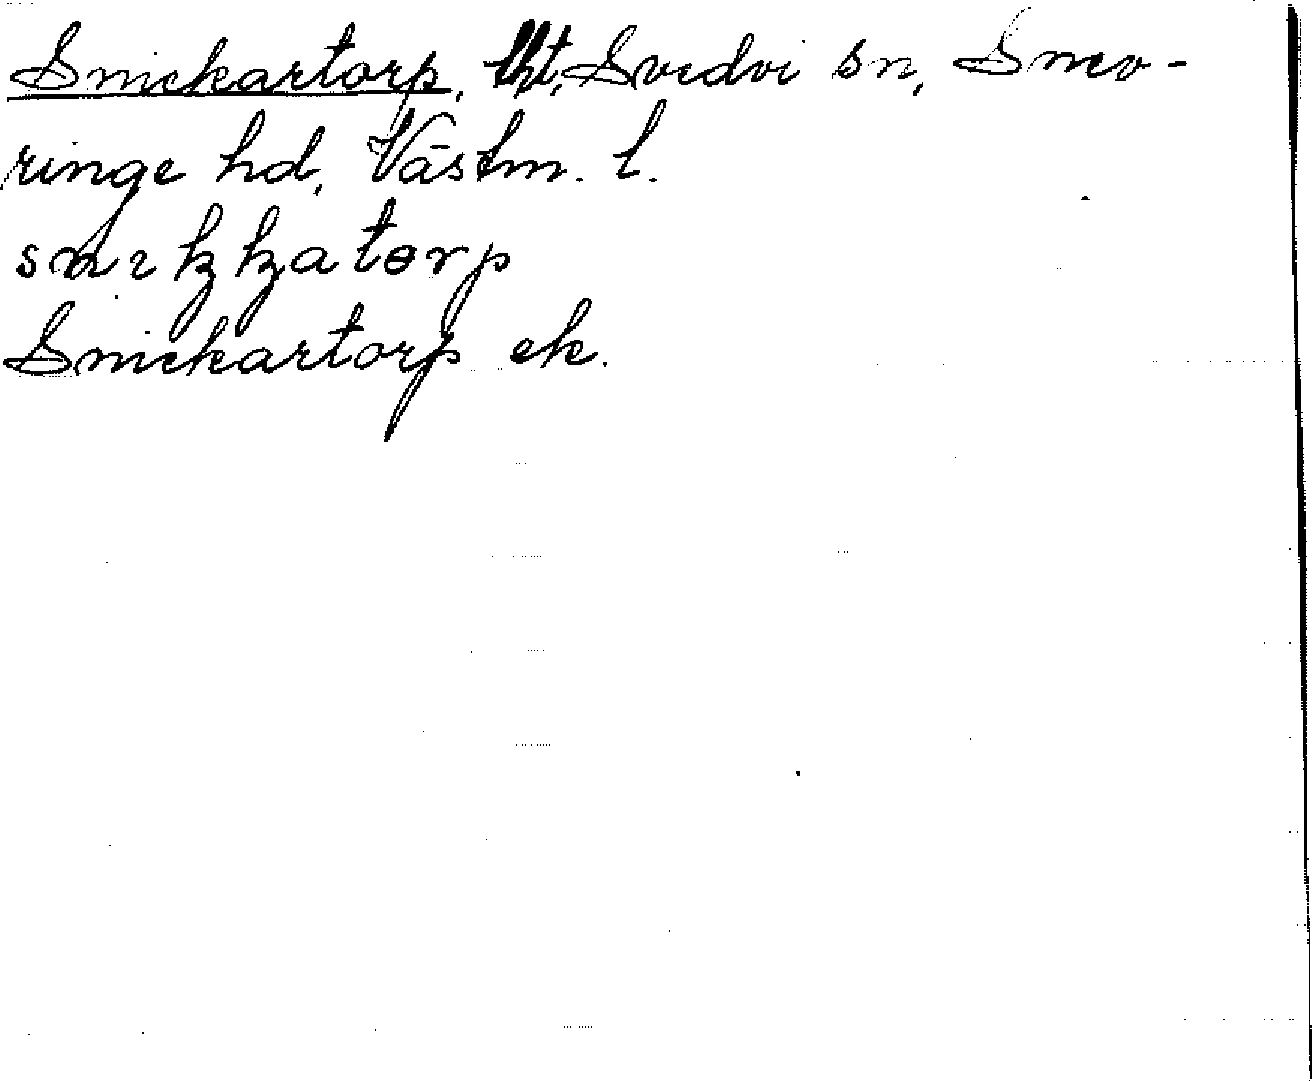 Snickartorp, lht, Svedvi sn, Snev-
ringe hd, Västm. l.
snɩkkatɵrp
Snickartorp ek.